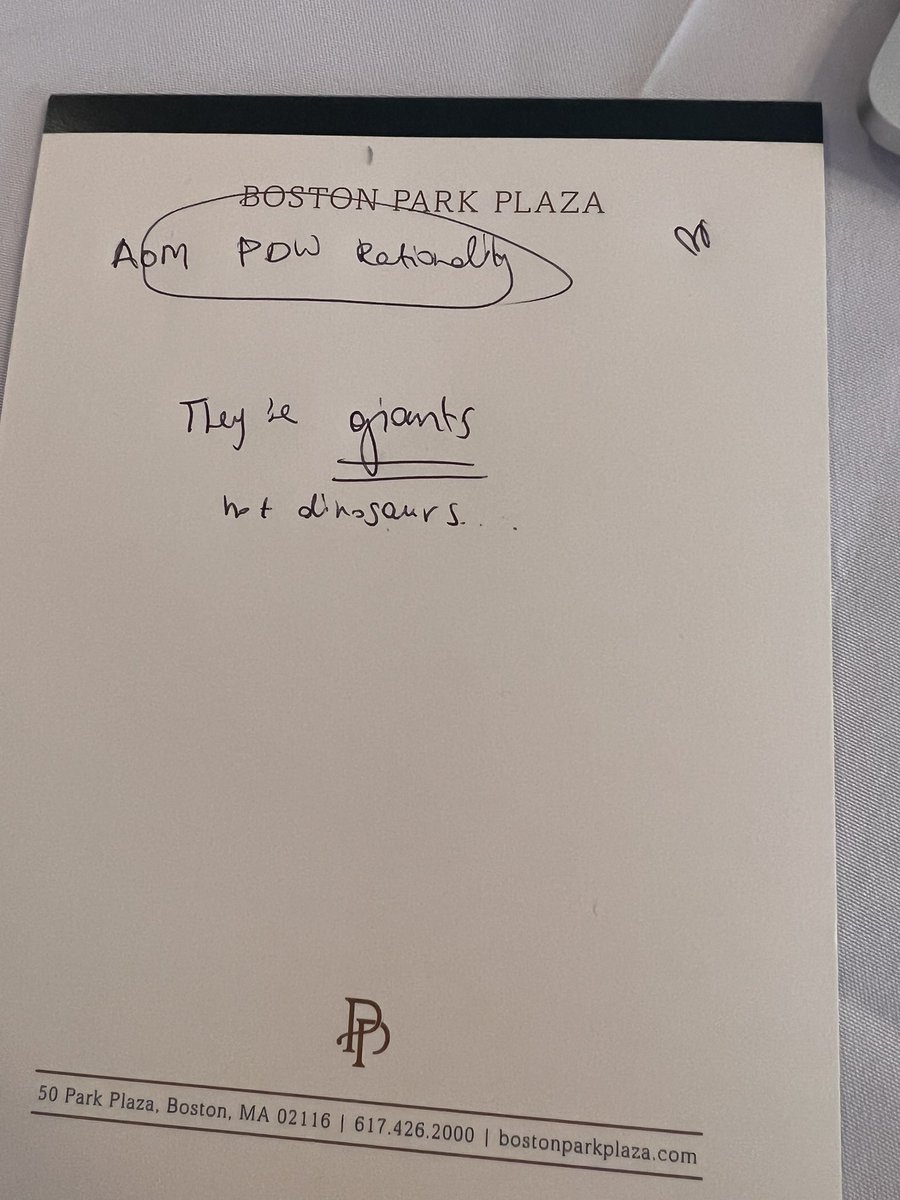 BOSTON PARK PLAZA
AoM PDW Rationality
They're giants
not dinosaurs....
PP
50 Park Plaza, Boston, MA 02116 | 617.426.2000 | bostonparkplaza.com